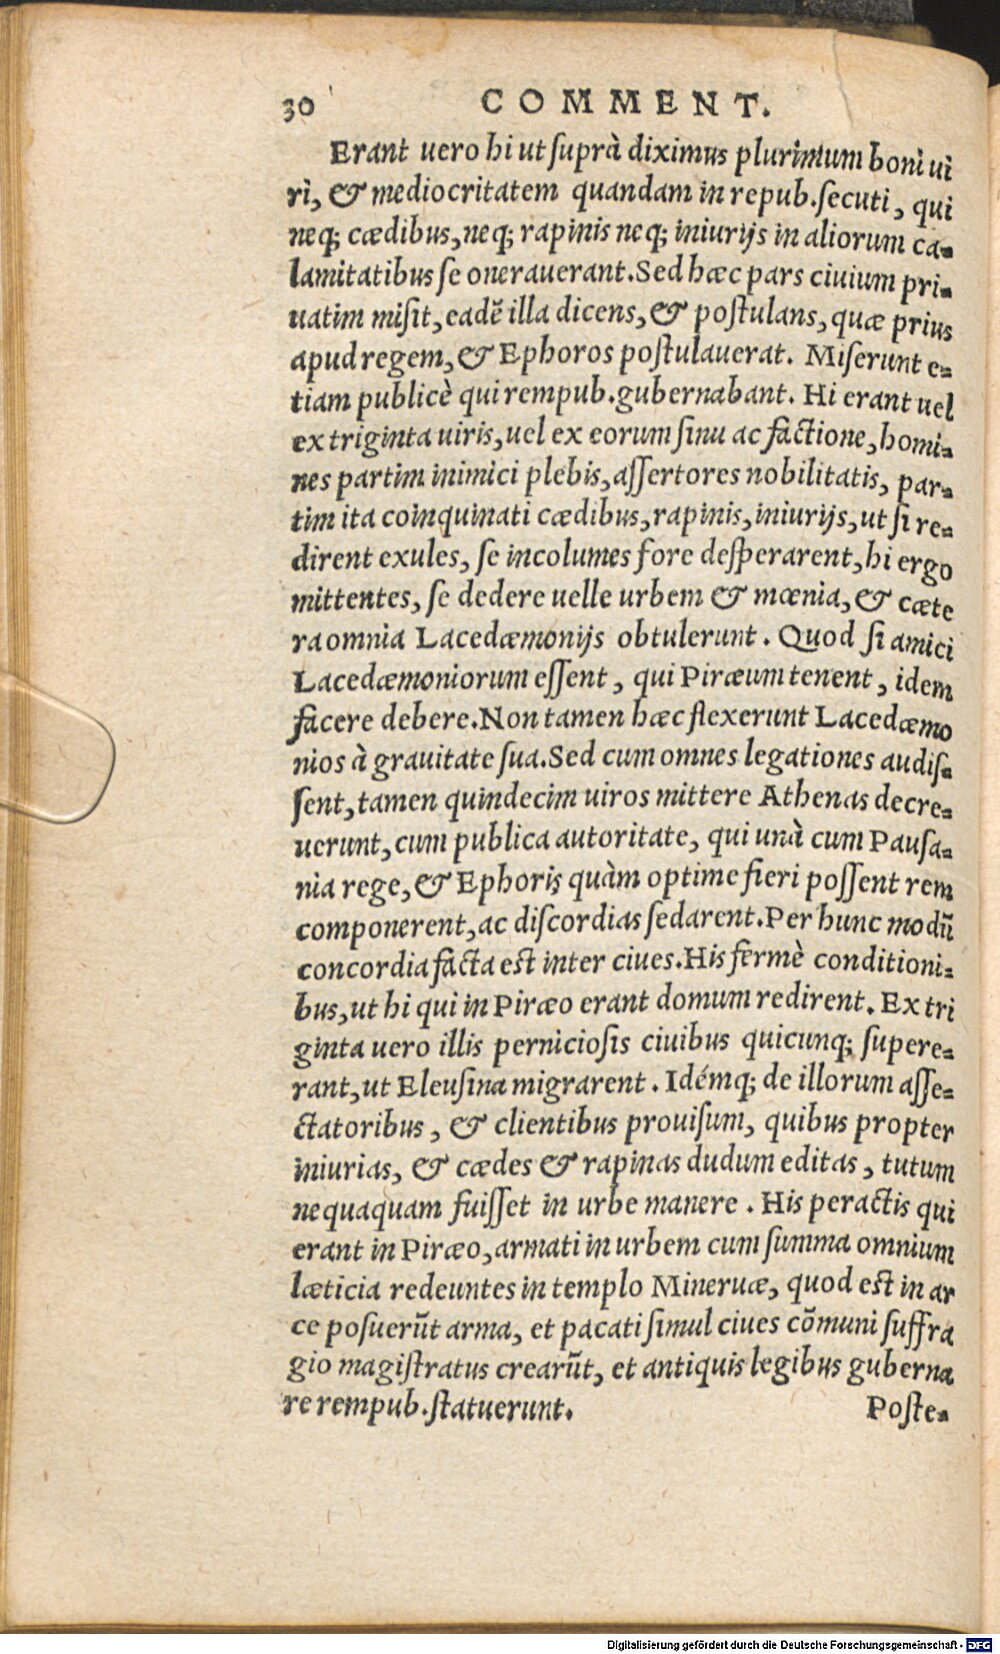 30 COMMENT.
Erant uero hi ut ſuprà diximus plurimum boni ui
ri, & mediocritatem quandam in repub. ſecuti, qui
neq; cædibus, neq; rapinis neq; iniurijs in aliorum ca-
lamitatibus ſe onerauerant. Sed hæc pars ciuium pri-
uatim miſit, eadē illa dicens, & poſtulans, quæ prius
apud regem, & Ephoros poſtulauerat. Miſerunt e-
tiam publicè qui rempub. gubernabant. Hi erant uel
ex triginta uiris, uel ex eorum ſinu ac factione, homi-
nes partim inimici plebis, aſſertores nobilitatis, par-
tim ita coinquinati cædibus, rapinis, iniurijs, ut ſi re-
dirent exules, ſe incolumes fore deſperarent, hi ergo
mittentes, ſe dedere uelle urbem & mœnia, & cæte
ra omnia Lacedæmonijs obtulerunt. Quod ſi amici
Lacedæmoniorum eſſent, qui Piræum tenent, idem
facere debere. Non tamen hæc flexerunt Lacedæmo
nios à grauitate ſua. Sed cum omnes legationes audiſ-
ſent, tamen quindecim uiros mittere Athenas decre-
uerunt, cum publica autoritate, qui unà cum Pauſa-
nia rege, & Ephoris quàm optime fieri poſſent rem
componerent, ac diſcordias ſedarent. Per hunc modū
concordia facta eſt inter ciues. His fermè conditioni-
bus, ut hi qui in Piræo erant domum redirent. Ex tri
ginta uero illis pernicioſis ciuibus quicunq; ſupere-
rant, ut Eleuſina migrarent. Idémq; de illorum aſſe-
ctatoribus, & clientibus prouiſum, quibus propter
iniurias, & cædes & rapinas dudum editas, tutum
nequaquam fuiſſet in urbe manere. His peractis qui
erant in Piræo, armati in urbem cum ſumma omnium
læticia redeuntes in templo Mineruæ, quod eſt in ar
ce poſuerūt arma, et pacati ſimul ciues cōmuni ſuffra
gio magiſtratus crearūt, et antiquis legibus guberna
re rempub. ſtatuerunt. Poſte-
Digitalisierung gefördert durch die Deutsche Forschungsgemeinschaft - DFG